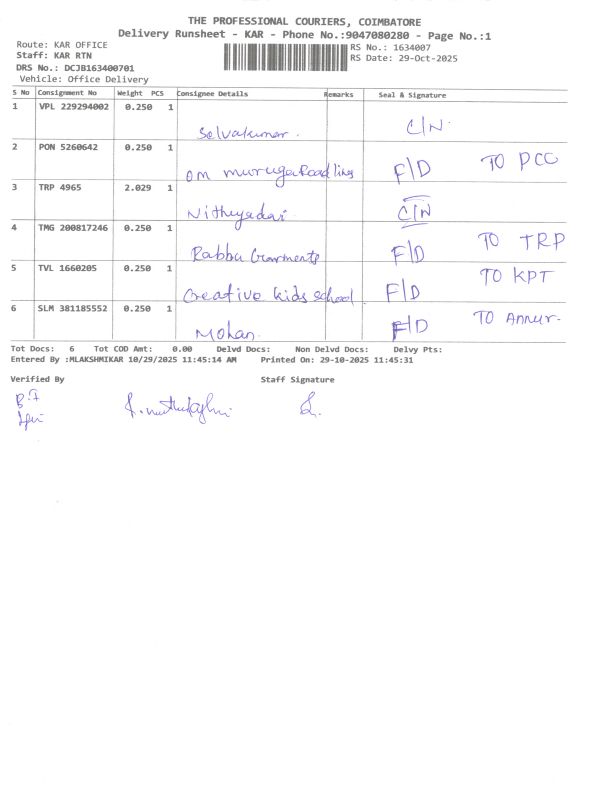 THE PROFESSIONAL COURIERS, COIMBATORE
Delivery Runsheet - KAR - Phone No.:9047080280 - Page No.:1
Route: KAR OFFICE
Staff: KAR RTN
DRS No.: DCJB163400701
Vehicle: Office Delivery
RS No.: 1634007
RS Date: 29-Oct-2025
S No Consignment No Weight PCS Consignee Details Remarks Seal & Signature
1 VPL 229294002 0.250 1
Selvakumar. C/N.
2 PON 5260642 0.250 1
om murugaRoad lines F/D TO PCC
3 TRP 4965 2.029 1
Nithyadevi C/N
4 TMG 200817246 0.250 1
Rabba Garments F/D TO TRP
5 TVL 1660205 0.250 1
Creative kids school F/D TO KPT
6 SLM 381185552 0.250 1
Mohan. F/D TO Annur-
Tot Docs: 6 Tot COD Amt: 0.00 Delvd Docs: Non Delvd Docs: Delvy Pts:
Entered By :MLAKSHMIKAR 10/29/2025 11:45:14 AM Printed On: 29-10-2025 11:45:31
Verified By Staff Signature